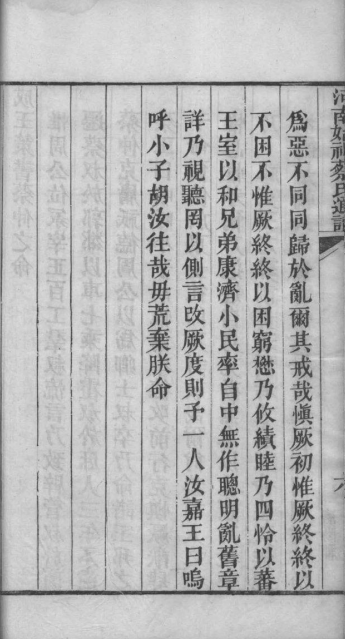 河南姬神蔡氏通譜
六
爲惡不同同歸於亂爾其戒哉愼厥初惟厥終終以
不困不惟厥終終以困窮懋乃攸績睦乃四怜以蕃
王室以和兄弟康濟小民率自中無作聰明亂舊章
詳乃視聽罔以側言攺厥度則予一人汝嘉王曰嗚
呼小子胡汝往哉毋荒棄朕命